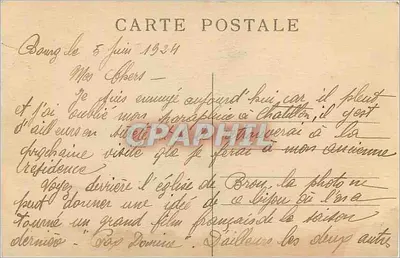 CARTE POSTALE
Bourg le 5 Juin 1924
Mes Chers —
Je suis ennuyé aujourd'hui, car il pleut
et j'ai oublié mon parapluie à Chatillon, il y est
d'ailleurs en à la
prochaine visite que je ferai à mon ancienne
résidence.
Voyez derrière l'église de Brou, la photo ne
peut donner une idée de ce bijou où l'on a
tourné un grand film français de la saison
dernière. D'ailleurs les deux autres
CPAPHIL